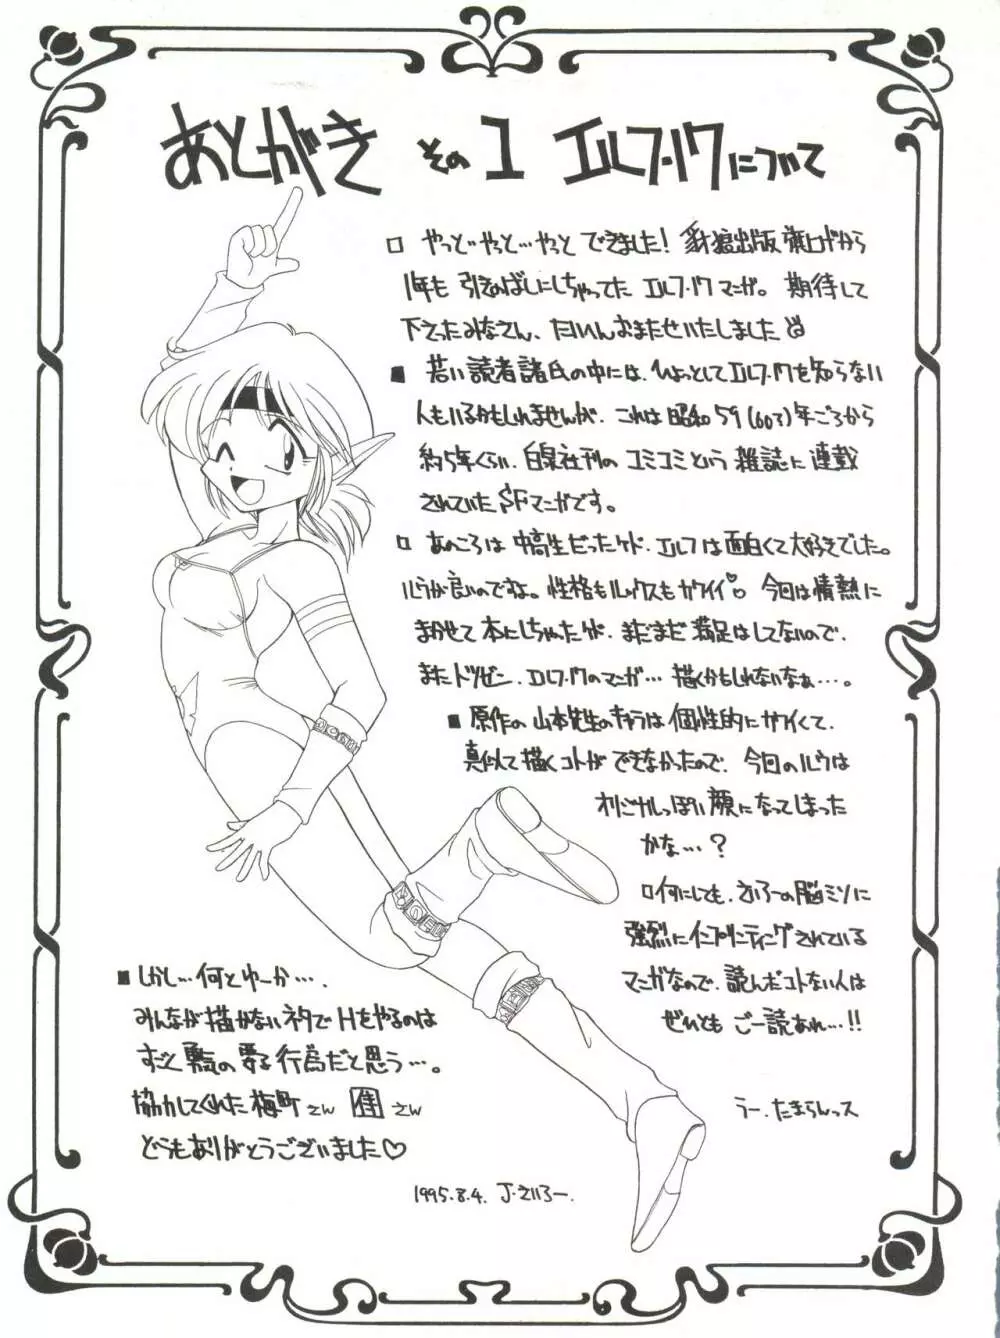 あとがき その1 エルフ・17について
□ やっと…やっと…やっと できました! 豺狼出版 旗上げから
1年も 引きのばしにしちゃってた エルフ・17 マンガ。 期待して
下さったみなさん、たいへんおまたせいたしました
■ 若い読者諸氏の中には、ひょっとしてエルフ・17を知らない
人もいるかもしれませんが、これは昭和59(60?)年ごろから
約5年くらい、白泉社刊の コミコミという 雑誌に 連載
されていた SFマンガです。
□ あのころは 中高生だったケド、エルフは面白くて大好きでした。
ルウが良いのですね。性格もルックスもカワイイ♡ 今回は情熱に
まかせて 本にしちゃったケド、まだまだ 満足はしてないので、
またトツゼン、エルフ・17のマンガ… 描くかもしれないなぁ…。
■ 原作の 山本先生のキャラは 個性的にカワイくて、
真似て描くコトが できなかったので、今回のルウは
オリジナルっぽい顔になってしまった
かな…?
□何にしても、さいろーの脳ミソに
強烈にインプリンティングされている
マンガなので、読んだコトない人は
ぜひとも ご一読あれ…!!
うー、たまらんっス
■しかし…何とゆーか…、
みんなが描かないネタでHをやるのは
すごく勇気の要る行為だと思う…。
協力してくれた 梅町さん 佳さん
どうもありがとうございました♡
1995.8.4. J・さいろー.